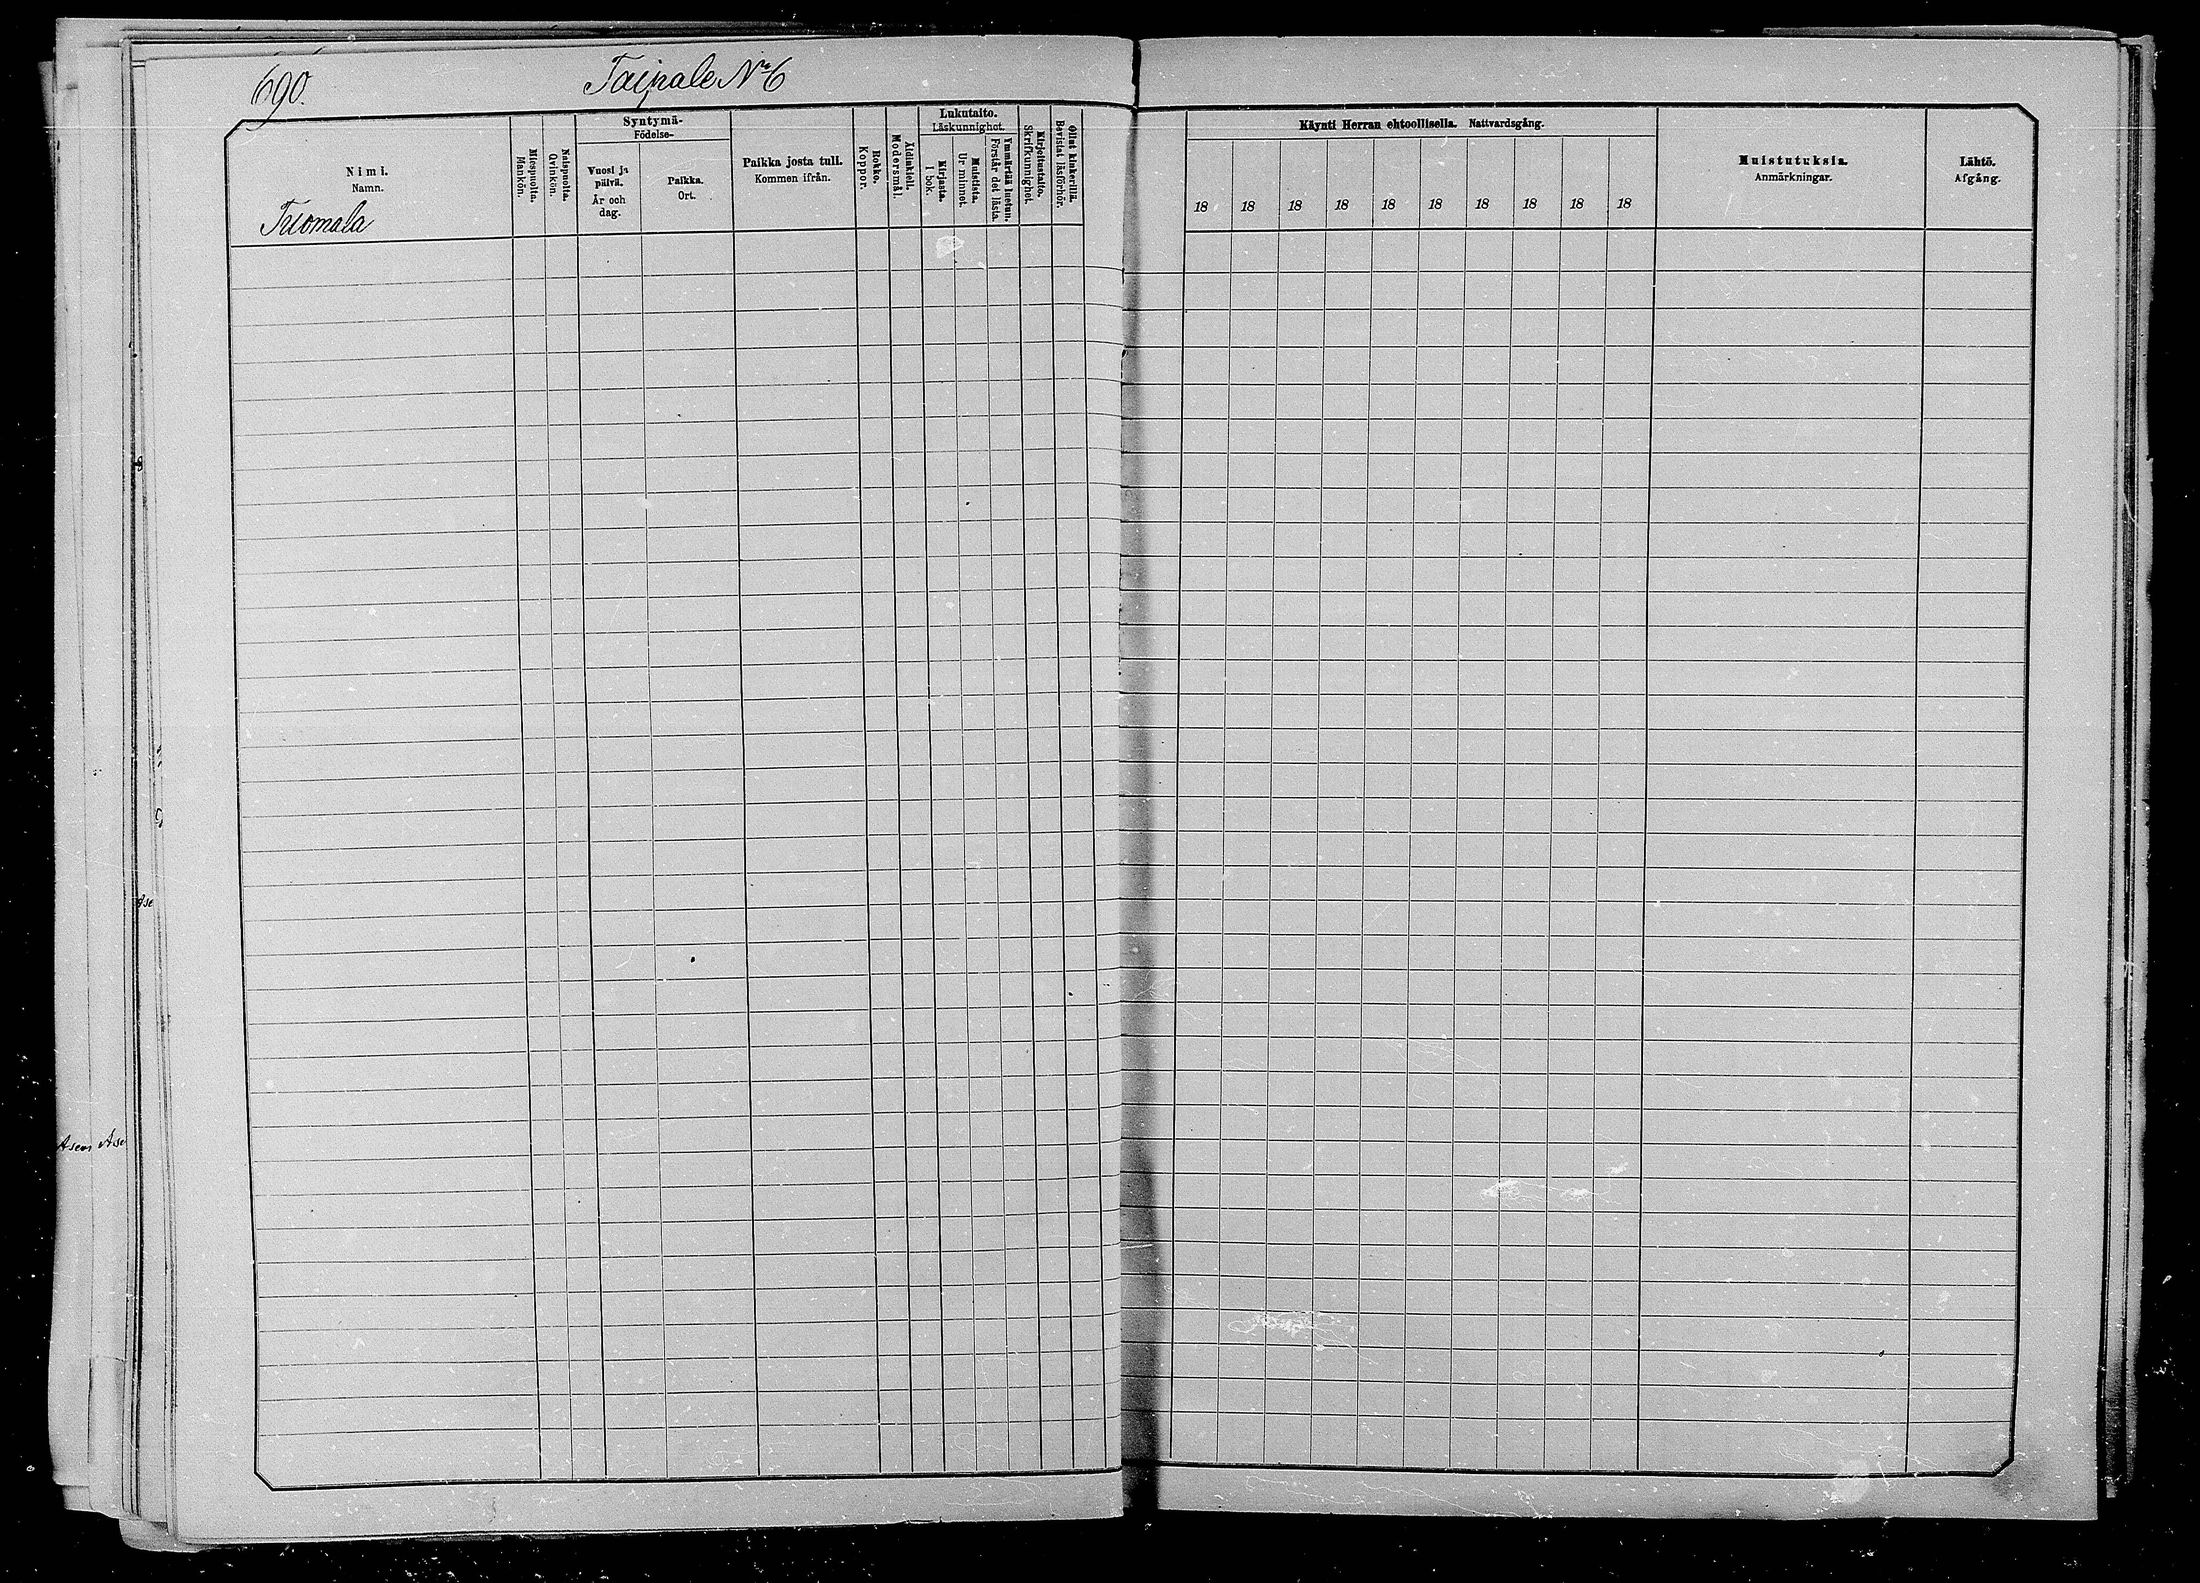 690.
Taipale No 6
Nimi.
Namn.
Tuomala
Miespuolta.
Mankön.
Naispuolta.
Qvinkön.
Syntymä-
Födelse-
Vuosi ja
päivä.
År och
dag.
Paikka.
Ort.
Paikka josta tuli.
Kommen ifrån.
Rokko.
Koppor.
Äidinkieli.
Modersmål.
Lukutaito.
Läskunnighet.
Kirjasta.
I bok.
Muistista.
Ur minnet.
Ymmärtää luetun.
Förstår det lästa.
Kirjoitustaito.
Skrifkunnighet.
Ollut kinkerillä.
Bevistat läsförhör.
Käynti Herran ehtoollisella. Nattvardsgång.
18 18 18 18 18 18 18 18 18 18
Muistutuksia.
Anmärkningar.
Lähtö.
Afgång.